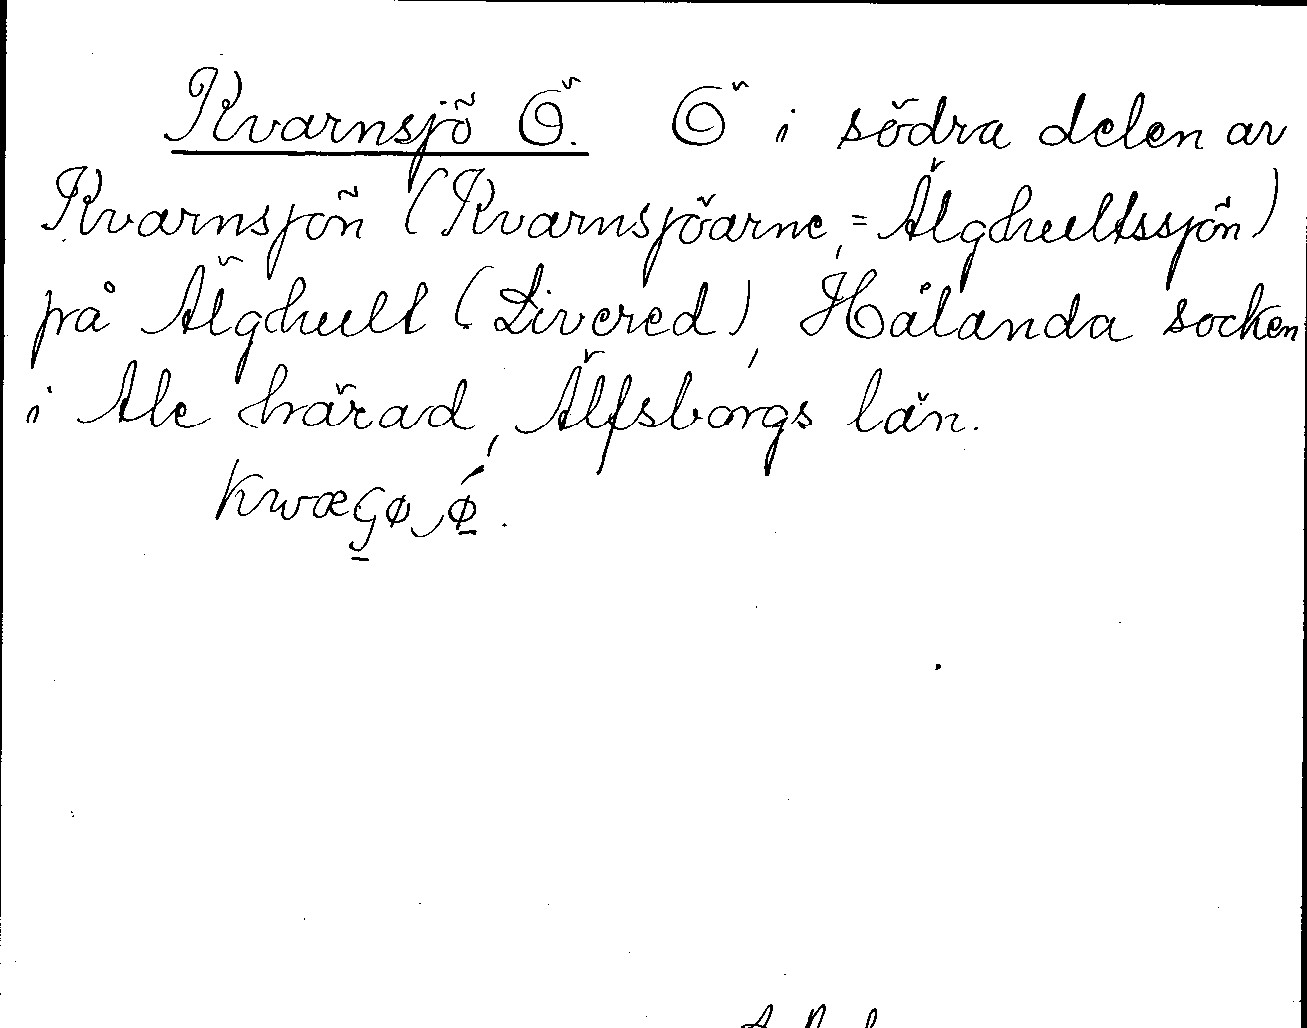 Kvarnsjö Ö. Ö i södra delen av
Kvarnsjön (Kvarnsjöarne, = Älghultssjön)
på Älghult (Livered), Hålanda socken
i Ale härad, Älfsborgs län.